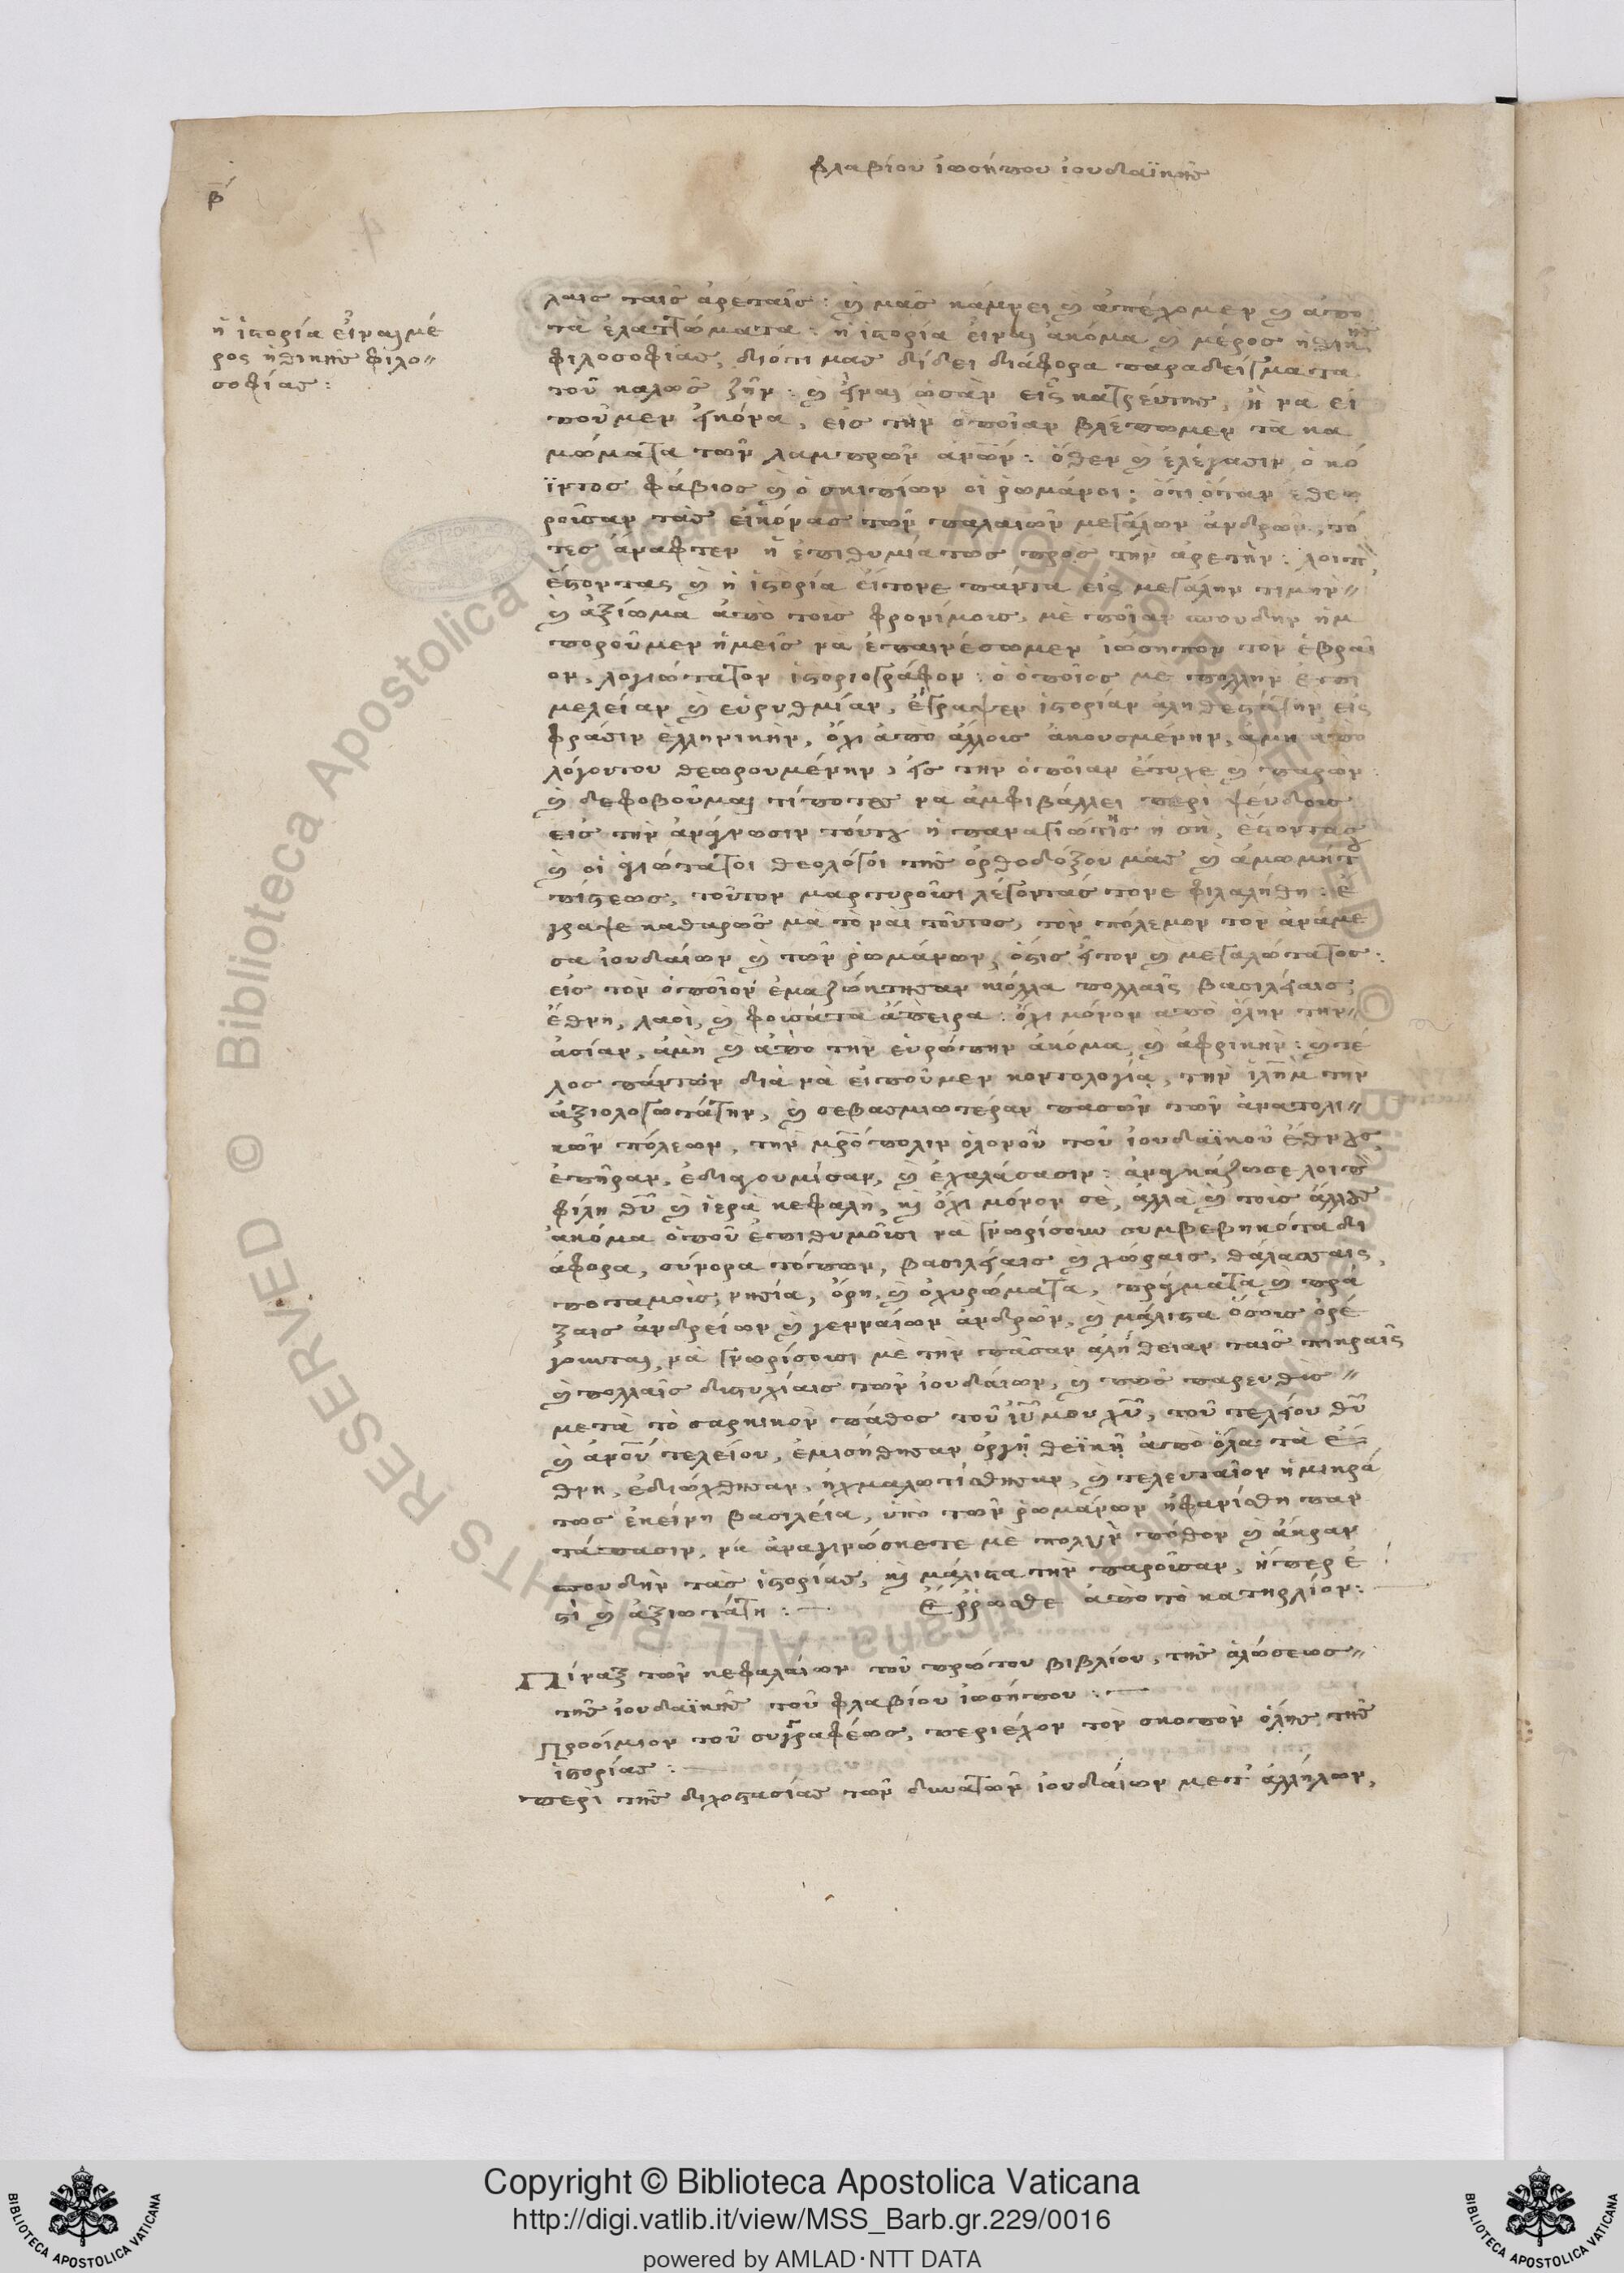 φλαβίου ἰωσήπου ἰουδαϊκῆς
β΄
ἡ ἱστορία εἶναι μέ
ρος ἠθικῆς φιλο
σοφίας:
λαις ταῖς ἀρεταῖς: καὶ μᾶς κάμνει καὶ ἀπέχομεν καὶ ἀπὸ
τὰ ἐλαττώματα: ἡ ἱστορία εἶναι ἀκόμα καὶ μέρος ἠθικῆς
φιλοσοφίας, διότι μας δίδει διάφορα παραδείγματα
τοῦ καλῶς ζῆν: καὶ εἶναι ὡσὰν εἷς καθρεύτης, ἢ να εἰ
ποῦμεν εἰκόνα, εἰς τὴν ὁποῖαν βλέπωμεν τὰ κα
μώματα τῶν λαμπρῶν ἀνῶν: ὅθεν καὶ ἐλέγασιν, ὁ κό
ϊντος φάβιος καὶ ὁ σκιπίων οἱ ῥωμάνοι: ὅτι ὅταν ἐθεω
ροῦσαν τὰς εἰκόνας τῶν παλαιῶν μεγάλων ἀνδρῶν, τό
τες ἄναφτεν ἡ ἐπιθυμία τως προς τὴν ἀρετὴν: λοιπὸν
ἔστοντας καὶ ἡ ἱστορία εἴτονε πάντα εἰς μεγάλην τιμὴν
καὶ ἀξίωμα ἀπὸ τοὺς φρονίμους, μὲ ποῖαν σπουδὴν ἠμ
ποροῦμεν ἡμεῖς νὰ ἐπαινέσωμεν ἰώσηπον τὸν ἑβραῖ
ον, λογιώτατον ἱστοριογράφον: ὁ ὁποῖος με πολλὴν ἐπι
μελείαν καὶ εὐρυθμίαν, ἔγραψεν ἱστορίαν ἀληθεστάτην εἰς
φράσιν ἑλληνικὴν, ὄχι ἀπὸ ἄλλους ἀκουσμένην, ἀμὴ ἀπὸ
λόγουτου θεωρουμένην, εἰς την ὁποῖαν ἔτυχε καὶ παρὼν:
καὶ δεφοβοῦμαι τίποτες νὰ ἀμφιβάλλει περὶ ψεύδους
εἰς τὴν ἀνάγνωσιν τούτου ἡ παναγιώτης ἡ σὴ, ἔστοντας
καὶ οἱ ἁγιώτατοι θεολόγοι τῆς ὀρθοδόξου μας καὶ ἀμωμήτου
πίστεως, τοῦτον μαρτυροῦσι λέγοντάς τονε φιλαλήθη: ἔ
γραψε καθαρῶς μὰ τὸ ναὶ τοῦτος, τὸν πόλεμον τον ἀνάμε
σα ἰουδαίων καὶ τῶν ῥωμάνων, ὅστις εἶτον καὶ μεγαλώτατος:
εἰς τὸν ὁποῖον ἐμαζώκτησαν πολλα πολλαῖς βασιλείαις,
ἔθνη, λαοὶ, καὶ φουσάτα ἄπειρα: ὄχι μόνον ἀπὸ ὅλην τὴν
ἀσίαν, ἀμὴ καὶ ἀπὸ τὴν εὐρώπην ἀκόμα καὶ ἀφρικὴν: καὶ τέ
λος πάντων διὰ νὰ εἰποῦμεν κοντολογία, τὴν ἱλημ την
ἀξιολογωτάτην, καὶ σεβασμιωτέραν πασῶν τῶν ἀνατολι
κῶν πόλεων, τὴν μρόπολιν ὁλονοῦν τοῦ ἰουδαϊκοῦ ἔθνους,
ἐπῆραν, ἐδιαγουμίσαν, καὶ ἐχαλάσασιν: ἀναγκάζωσε λοιπὸν
φίλη θῦ καὶ ἱερὰ κεφαλὴ, καὶ ὄχι μόνον σὲ, ἀλλὰ καὶ τους ἄλλους
ἀκόμα ὁποῦ ἐπιθυμοῦσι νὰ γνωρίσουν συμβεβηκότα δι
άφορα, σύνορα τόπων, βασιλείαις καὶ χώραις, θάλασσαις,
ποταμοὺς, νησία, ὄρη, καὶ ὀχυρώματα, πράγματα καὶ πρά
ξαις ἀνδρείων καὶ γενναίων ἀνδρῶν, καὶ μάλιστα ὅσους ὀρέ
γουνται νὰ γνωρίσουσι μὲ τὴν πᾶσαν ἀλήθειαν ταῖς πικραῖς
καὶ πολλαῖς δυστυχίαις τῶν ἰουδαίων, καὶ πῶς παρευθὺς
μετὰ τὸ σαρκικὸν πάθος τοῦ ἰῦ μου χῦ, τοῦ τελείου θῦ
καὶ ἀνοῦ τελείου, ἐμισήθησαν ὀργῇ θεϊκῇ ἀπὸ ὅλα τὰ ἔ
θνη, ἐδιώχθησαν, ἠχμαλωτίσθησαν, καὶ τελευταῖον ἡ μικρά
τως ἐκείνη βασιλεία, ὑπὸ τῶν ῥωμάνων ἠφανίσθη παν
τάπασιν, νὰ ἀναγινώσκετε μὲ πολὺν πόθον καὶ ἄκραν
σπουδὴν τὰς ἱστορίας, καὶ μάλιστα τὴν παροῦσαν, ἥπερ ἐ
στὶ καὶ ἀξιωτάτη: Ἔρρωσθε ἀπὸ τὸ κατηρλίον:
Πίναξ τῶν κεφαλαίων τοῦ πρώτου βιβλίου, τῆς ἁλώσεως
τῆς ἰουδαϊκῆς τοῦ φλαβίου ἰωσήπου:
Προοίμιον τοῦ συγγραφέως, περιέχον τὸν σκοπὸν ὅλης τῆς
ἱστορίας:
περὶ τῆς διχοστασίας τῶν δυνατῶν ἰουδαίων μετ' ἀλλήλων,
Biblioteca Apostolica Vaticana ALL RIGHTS RESERVED ©
Biblioteca Apostolica Vaticana ALL RIGHTS RESERVED ©
BIBLIOTECA APOSTOLICA VATICANA
Copyright © Biblioteca Apostolica Vaticana
http://digi.vatlib.it/view/MSS_Barb.gr.229/0016
powered by AMLAD·NTT DATA
BIBLIOTECA APOSTOLICA VATICANA